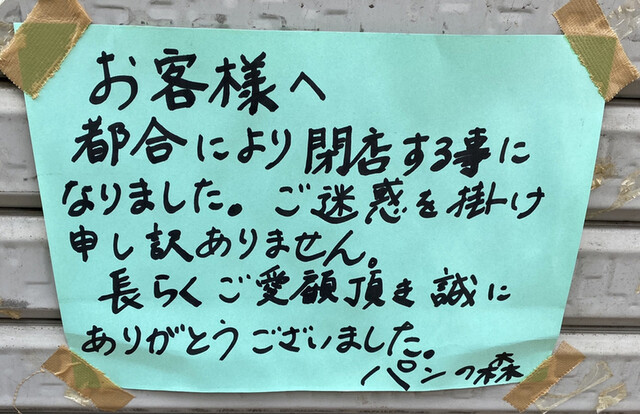 お客様へ
都合により閉店する事に
なりました。ご迷惑を掛け
申し訳ありません。
長らくご愛顧頂き誠に
ありがとうございました。
パンの森